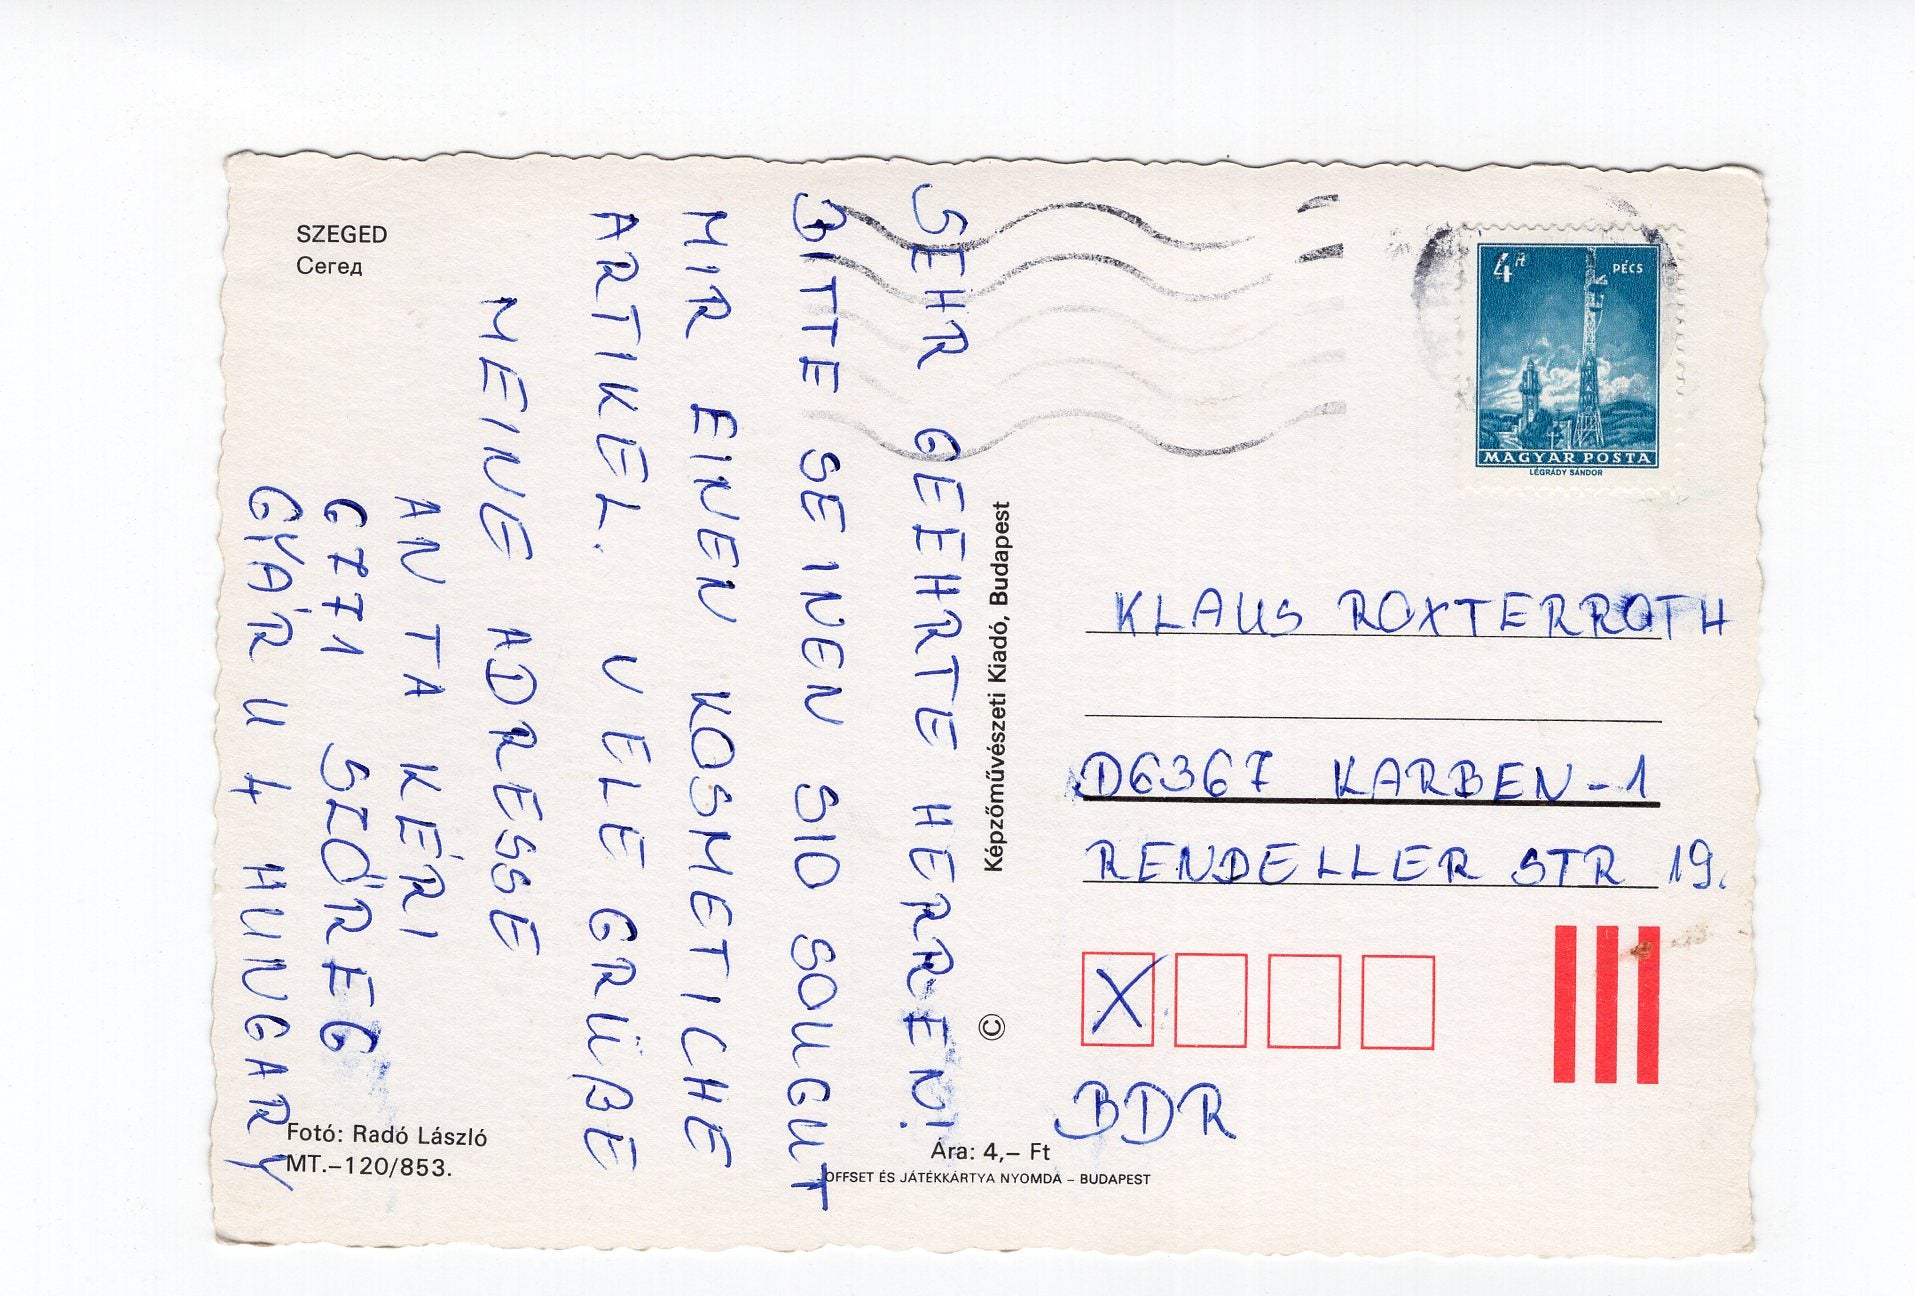 SZEGED
Сегед
SEHR GEEHRTE HERREN!
BITTE SEINEN SIO SOUGUT
MIR EINEN KOSMETICHE
ARTIKEL. VELE GRÜßE
MEINE ADRESSE
ANTA KÉRI
6771 SZŐREG
GYÁR U 4 HUNGARY
Fotó: Radó László
MT.–120/853.
Képzőművészeti Kiadó, Budapest
©
Ára: 4,– Ft
OFFSET ÉS JÁTÉKKÁRTYA NYOMDA – BUDAPEST
4Ft PÉCS
MAGYAR POSTA
LÉGRÁDY SÁNDOR
KLAUS ROXTERROTH
D6367 KARBEN-1
RENDELLER STR 19.
X
BDR